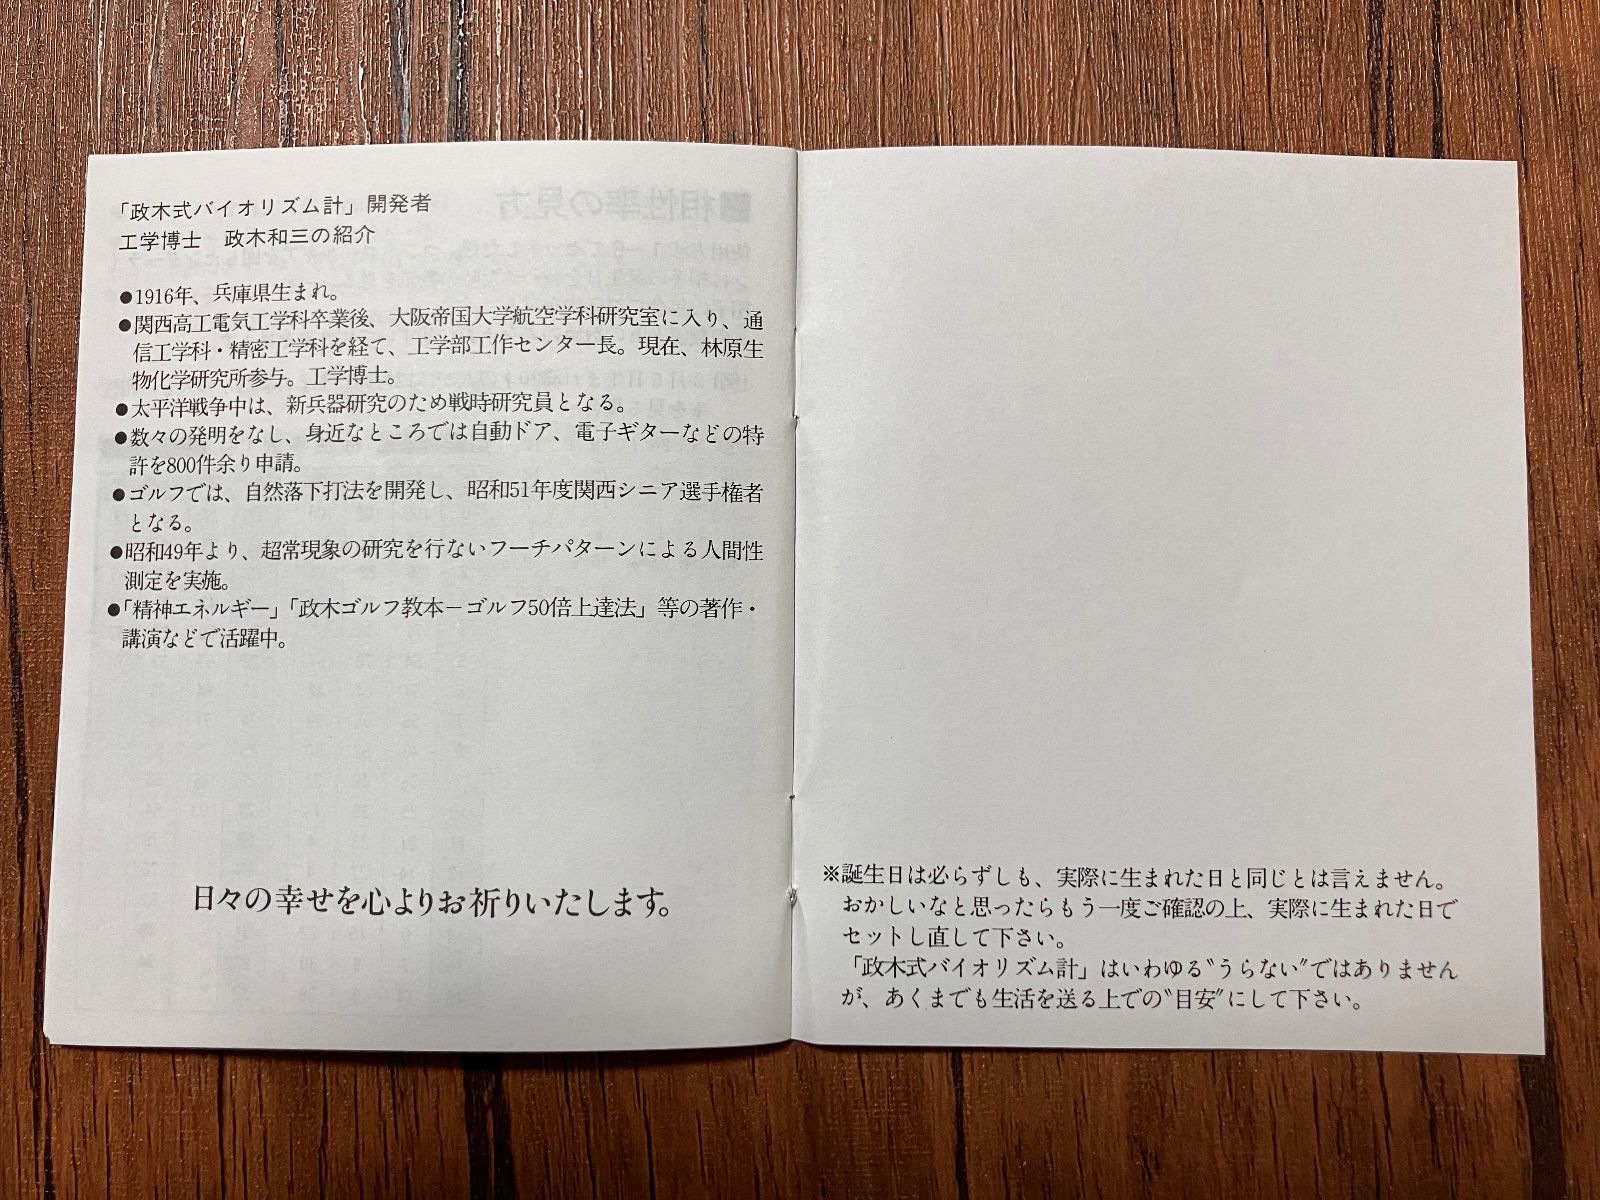 「政木式バイオリズム計」開発者
工学博士　政木和三の紹介
●1916年、兵庫県生まれ。
●関西高工電気工学科卒業後、大阪帝国大学航空学科研究室に入り、通
信工学科・精密工学科を経て、工学部工作センター長。現在、林原生
物化学研究所参与。工学博士。
●太平洋戦争中は、新兵器研究のため戦時研究員となる。
●数々の発明をなし、身近なところでは自動ドア、電子ギターなどの特
許を800件余り申請。
●ゴルフでは、自然落下打法を開発し、昭和51年度関西シニア選手権者
となる。
●昭和49年より、超常現象の研究を行ないフーチパターンによる人間性
測定を実施。
●「精神エネルギー」「政木ゴルフ教本－ゴルフ50倍上達法」等の著作・
講演などで活躍中。
日々の幸せを心よりお祈りいたします。
※誕生日は必らずしも、実際に生まれた日と同じとは言えません。
おかしいなと思ったらもう一度ご確認の上、実際に生まれた日で
セットし直して下さい。
「政木式バイオリズム計」はいわゆる〝うらない〟ではありません
が、あくまでも生活を送る上での〝目安〟にして下さい。